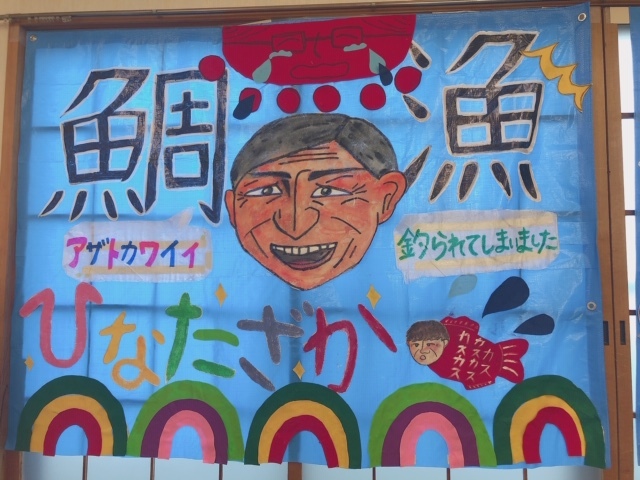 鯛漁
アザトカワイイ
釣られてしまいました
ひなたざか
カスカス
カスカス
カスカス